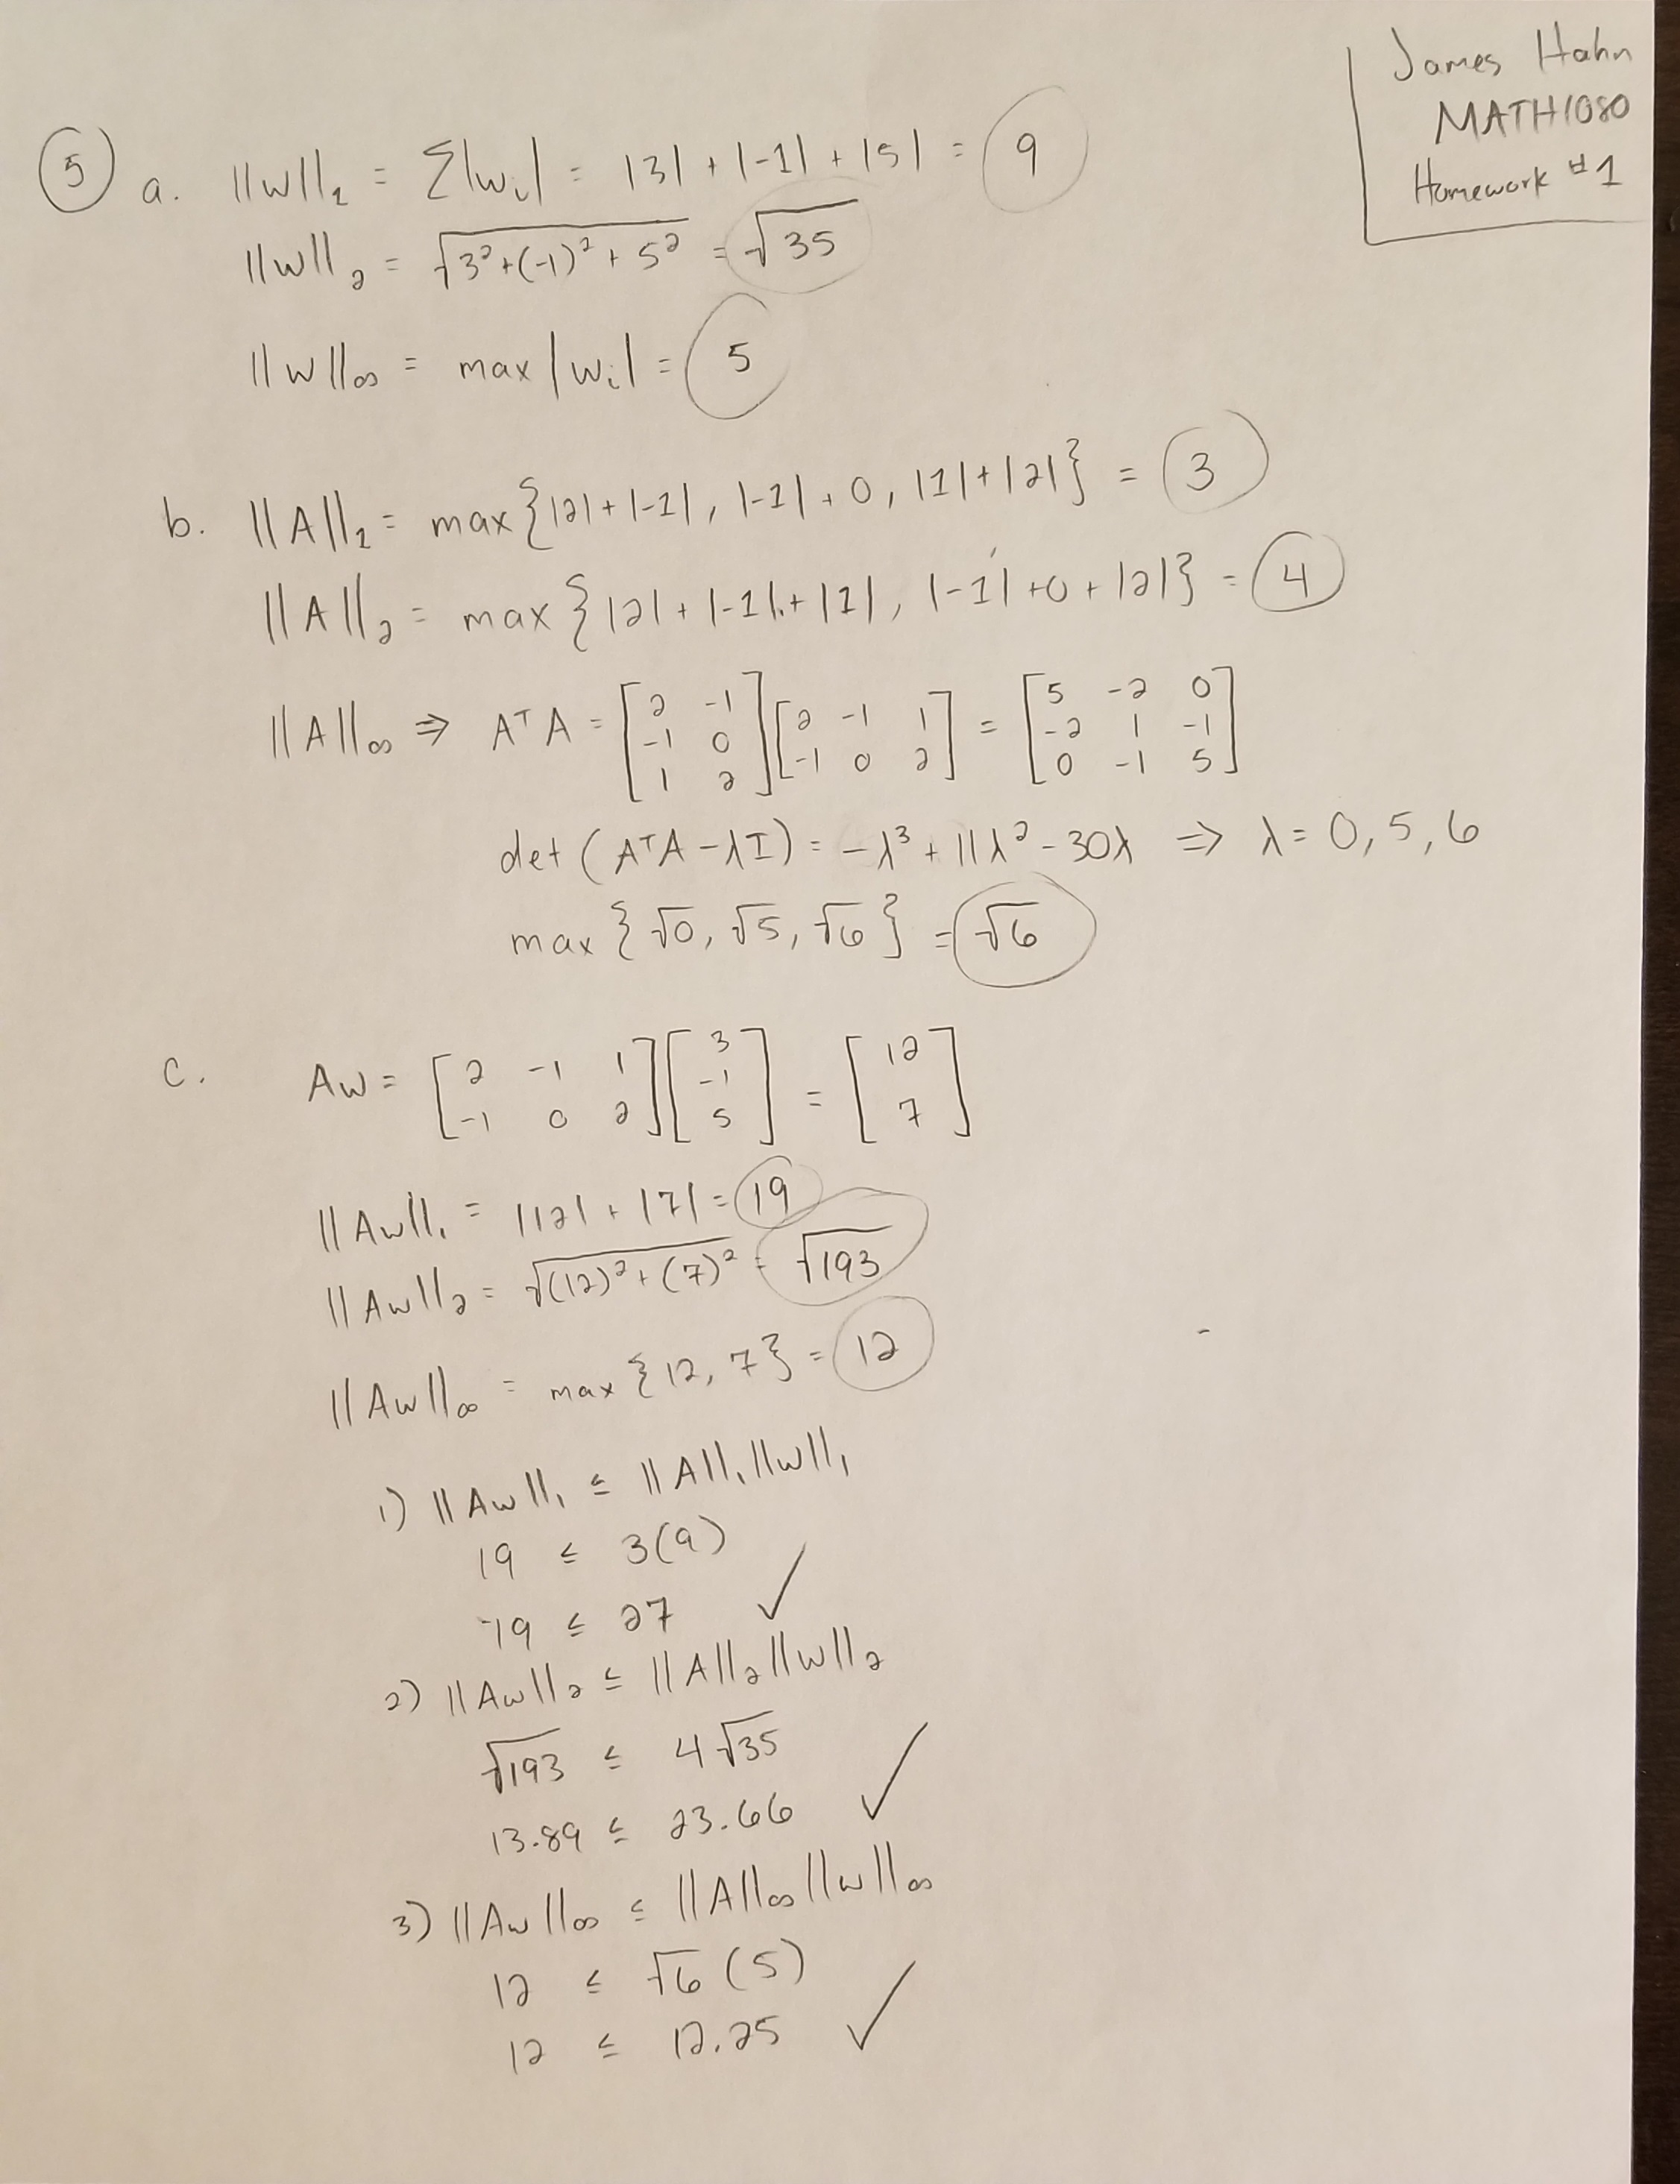 James Hahn
MATH1080
Homework #1
5 a. ||w||1 = Σ|wi| = |3| + |-1| + |5| = 9
||w||2 = √3²+(-1)²+5² = √35
||w||∞ = max|wi| = 5
b. ||A||1 = max{|2|+|-1|, |-1|+0, |1|+|2|} = 3
||A||2 = max{|2|+|-1|+|1|, |-1|+0+|2|} = 4
||A||∞ ⇒ AᵀA = [2 -1; -1 0; 1 2][2 -1 1; -1 0 2] = [5 -2 0; -2 1 -1; 0 -1 5]
det(AᵀA-λI) = -λ³+11λ²-30λ ⇒ λ = 0, 5, 6
max{√0, √5, √6} = √6
c. Aw = [2 -1 1; -1 0 2][3; -1; 5] = [12; 7]
||Aw||1 = |12| + |7| = 19
||Aw||2 = √(12)²+(7)² = √193
||Aw||∞ = max{12, 7} = 12
1) ||Aw||1 ≤ ||A||1||w||1
19 ≤ 3(9)
19 ≤ 27 ✓
2) ||Aw||2 ≤ ||A||2||w||2
√193 ≤ 4√35
13.89 ≤ 23.66 ✓
3) ||Aw||∞ ≤ ||A||∞||w||∞
12 ≤ √6(5)
12 ≤ 12.25 ✓